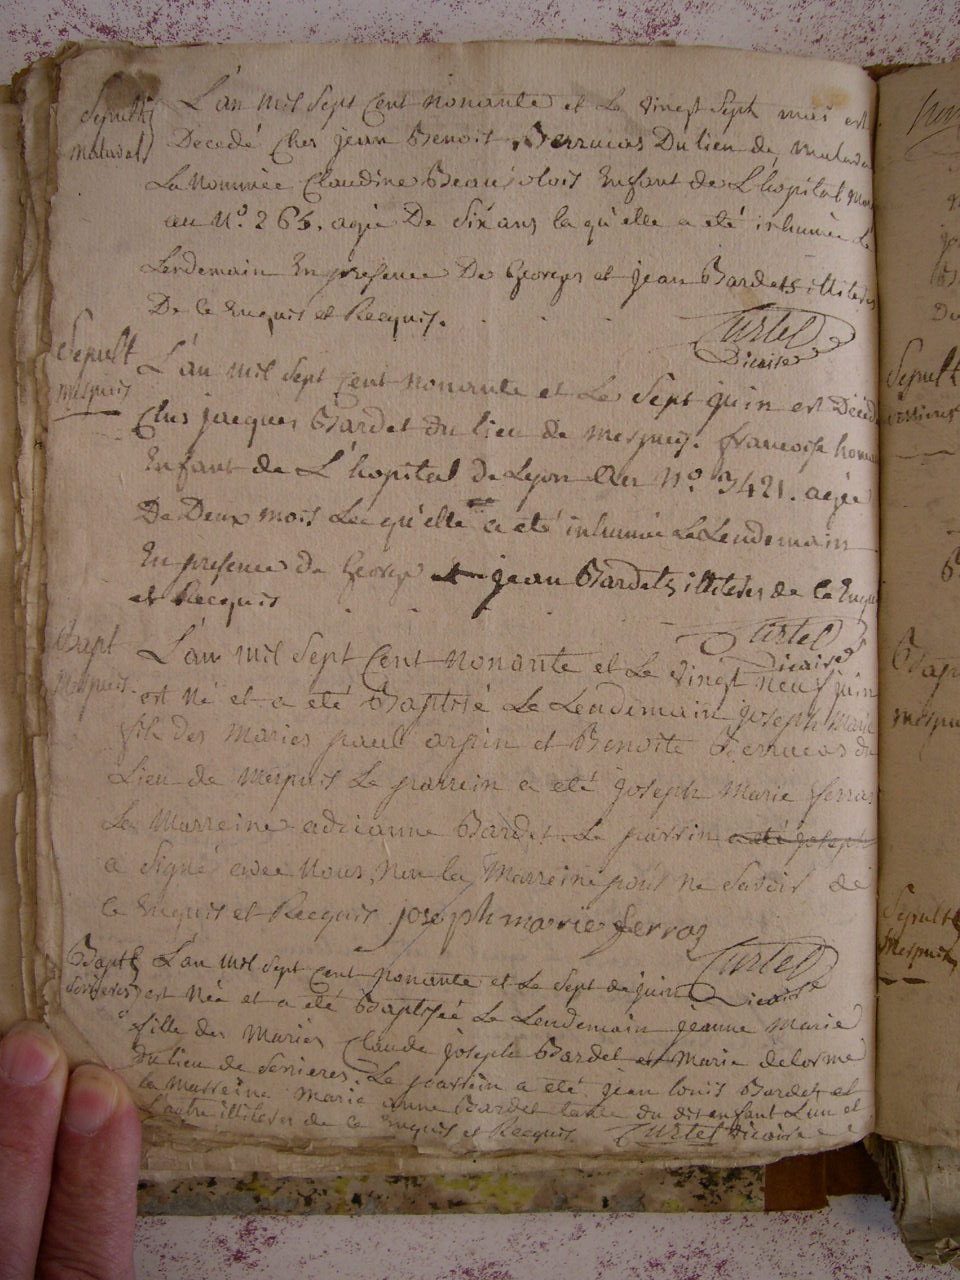 Sepult
L'an mil sept cent nonante et le vingt sept mai est
Decedé ches jean Benoit Berrucas Du lieu de
La nommée Claudine Beaujolois Enfant de L'hopital
au N.º 265. agée De Six ans la qu'elle a eté inhumée le
Lendemain En presence De Georges et jean Bardets illiteres
De ce Enquis et Recquis.
Curtel
Vicaire
Sepult
mespuis
L'an mil sept cent nonante et Le Sept juin est Décéd
Ches jacques Bardet du lieu de mespuis. francoise
Enfant de L'hopital de Lyon N.º 3421. agée
De Deux mois La qu'elle a eté inhumée Le Lendemain
En presence de George et jean Bardets illiteres de ce Enquis
et Recquis
Curtel
Vicaire
Bapt
Mespuis
L'an mil sept cent nonante et Le vingt neuf juin
est né et a eté Baptisé Le Lendemain joseph Marie
fils des Maries paul arpin et Benoite Berrucas du
Lieu de Mespuis Le parrein a eté joseph Marie ferras
La Marreine adrianne Bardet. Le parrin a eté joseph
a Signé avec Nous, Non la Marreine pour ne Savoir de
ce Enquis et Recquis joseph marie ferraz
Curtel
Vicaire
Bapt
Serrieres
L'an mil sept cent nonante et Le Sept de juin
est Née et a eté Baptisée Le Lendemain jeanne Marie
fille des Maries Claude joseph Bardet et Marie delorme
du lieu de Serrieres, Le parrein a eté jean louis Bardet et
la marreine Marie anne Bardet tante du dit enfant L'un et
L'autre illiteres de ce Enquis et Recquis. Curtel Vicaire
Sepult
Bap
mespu
Sepult
mespui